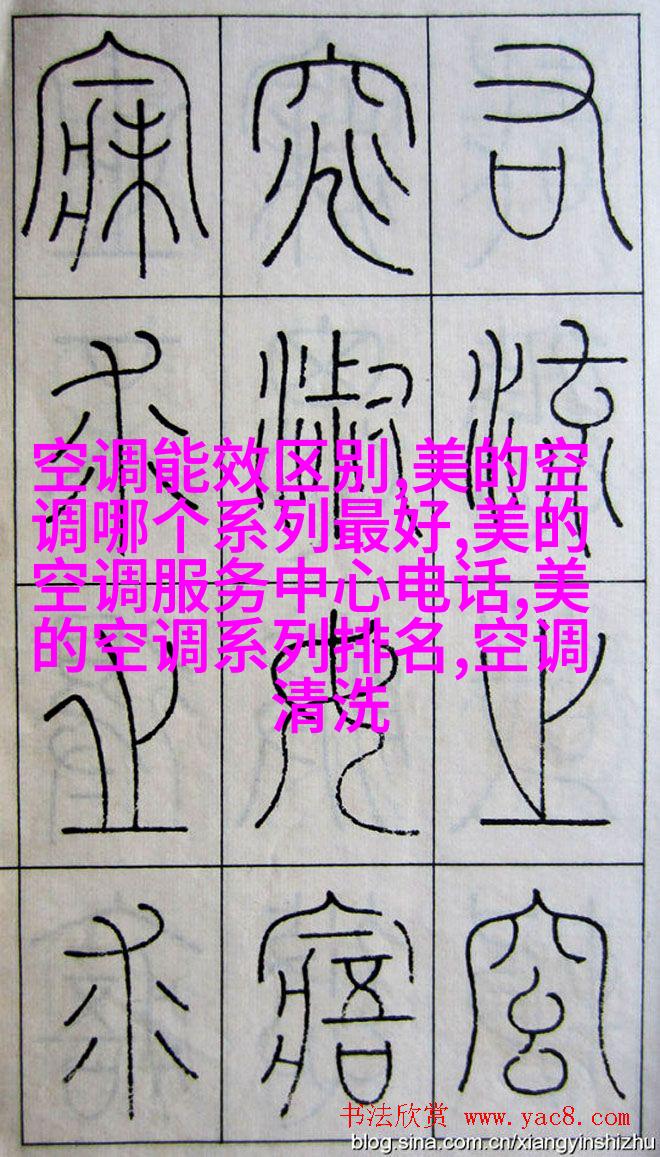 右流之窈
窕淑女寤
寐求之求
空调能效区别,美的空
调哪个系列最好,美的
空调服务中心电话,美
的空调系列排名,空调
清洗
书法欣赏 www.yac8.com
blog.sina.com.cn/xiangyinshizhu